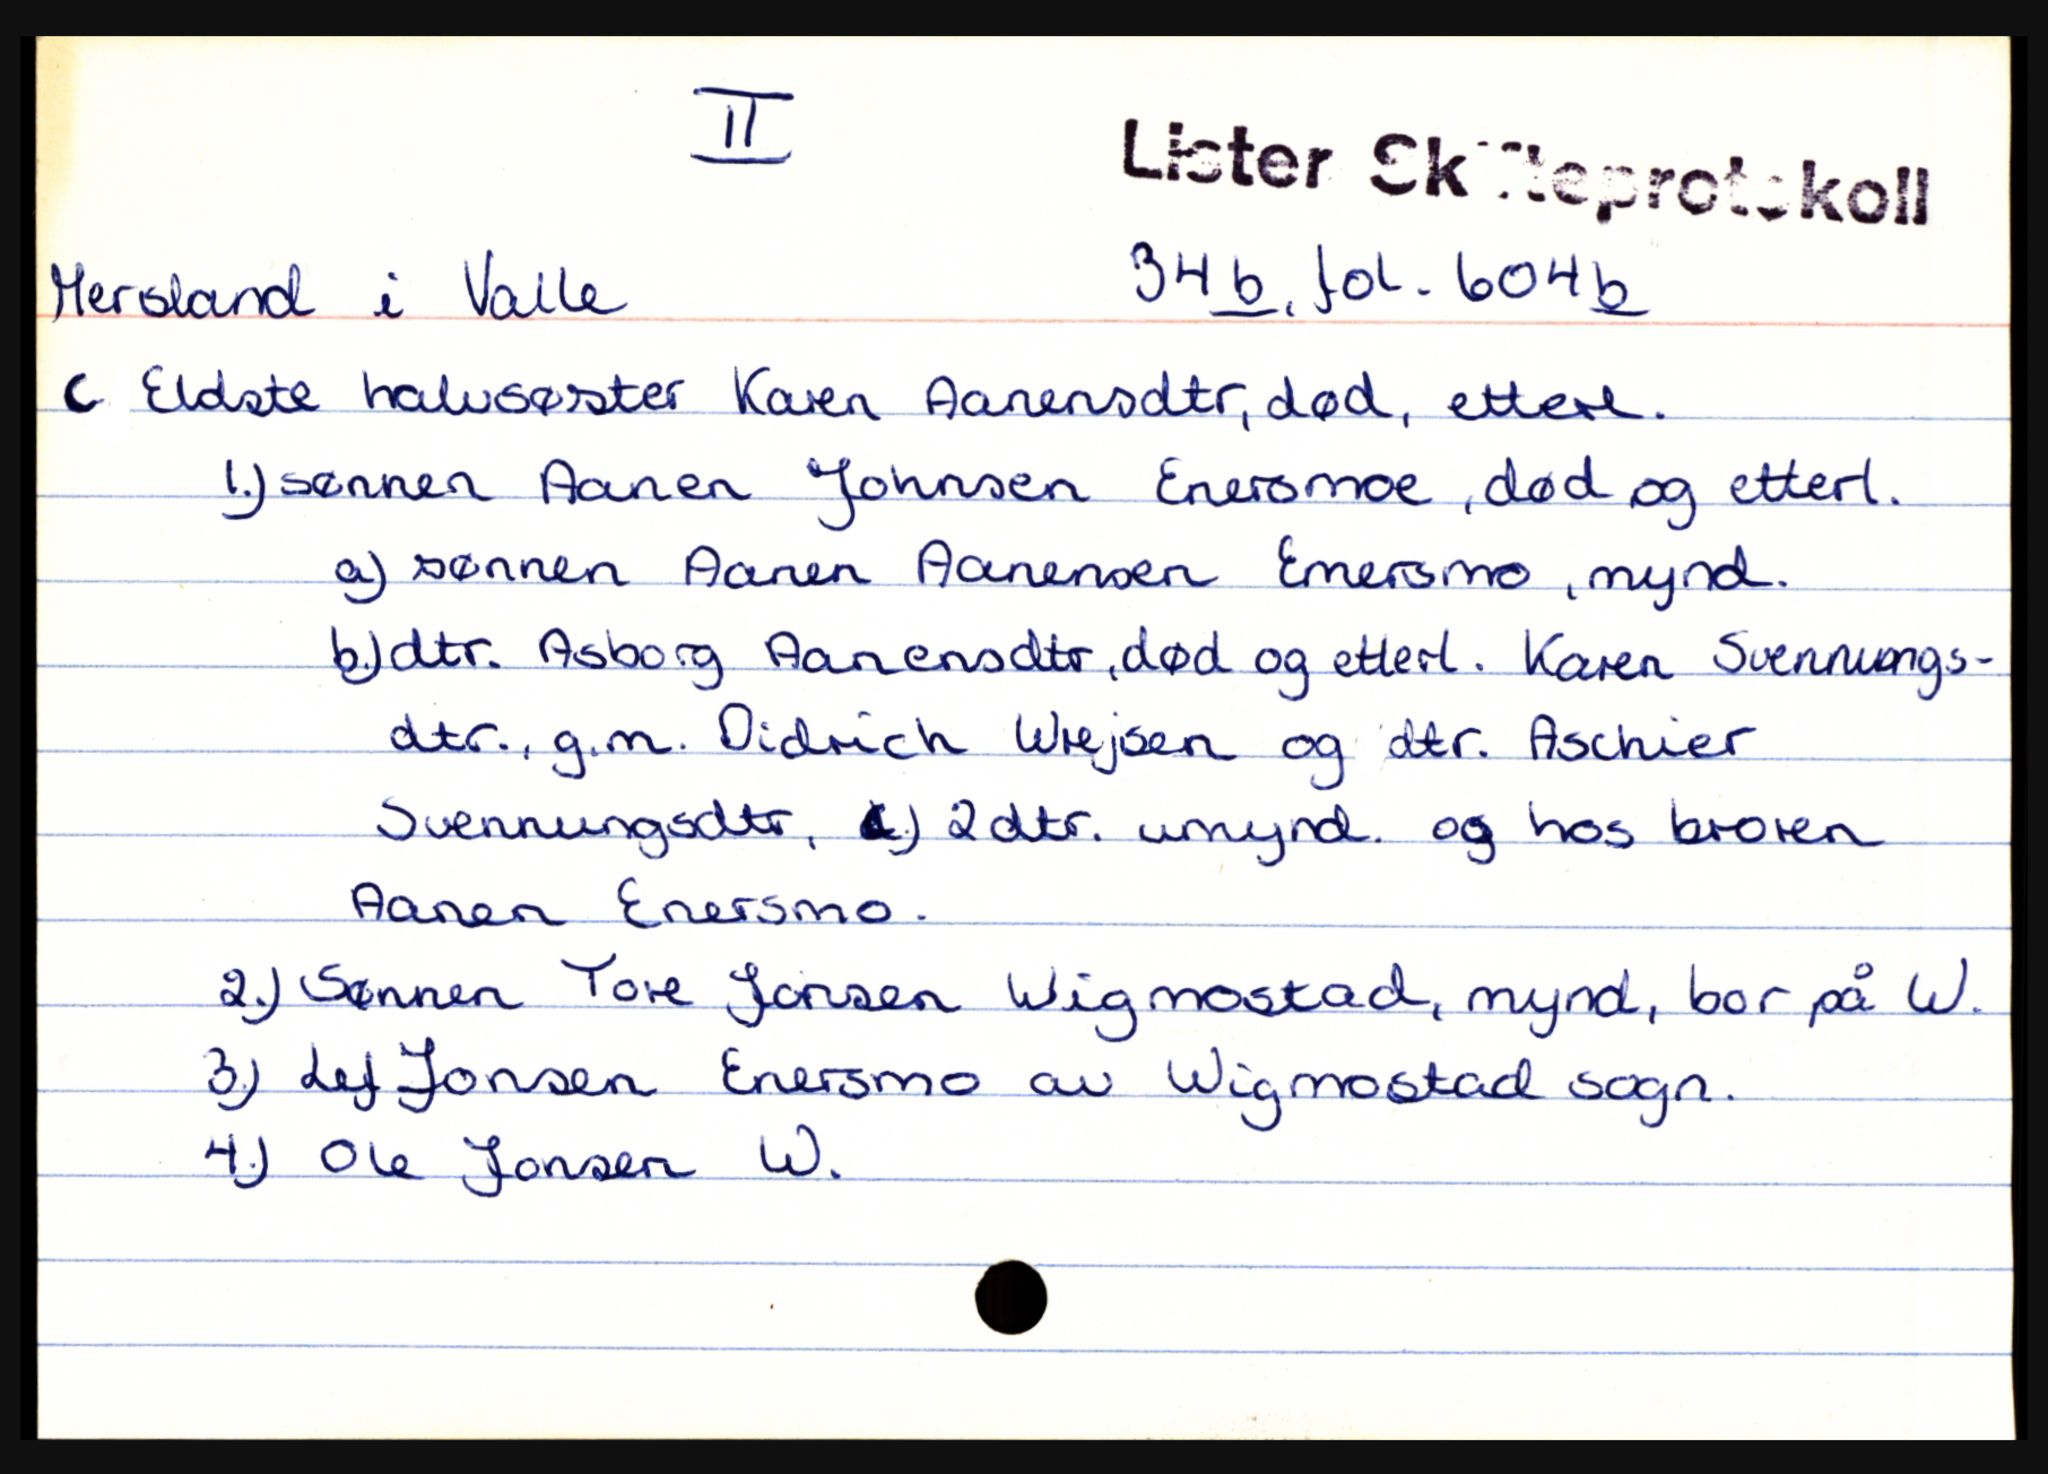 II
Lister Skifteprotokoll
Hersland i Valle 34b, fol. 604b
c Eldste halvsøster Karen Aanensdtr, død, etterl.
1.) sønnen Aanen Johnsen Enersmoe, død og etterl.
a) sønnen Aanen Aanensen Enersmo, mynd.
b.) dtr. Asborg Aanensdtr, død og etterl. Karen Svennungs-
dtr., g.m. Didrich Wrejsen og dtr. Aschier
Svennungsdtr, c.) 2 dtr. umynd. og hos broren
Aanen Enersmo.
2.) Sønnen Tore Jonsen Wigmostad, mynd, bor på W.
3.) Lej Jonsen Enersmo av Wigmostad sogn.
4.) Ole Jonsen W.